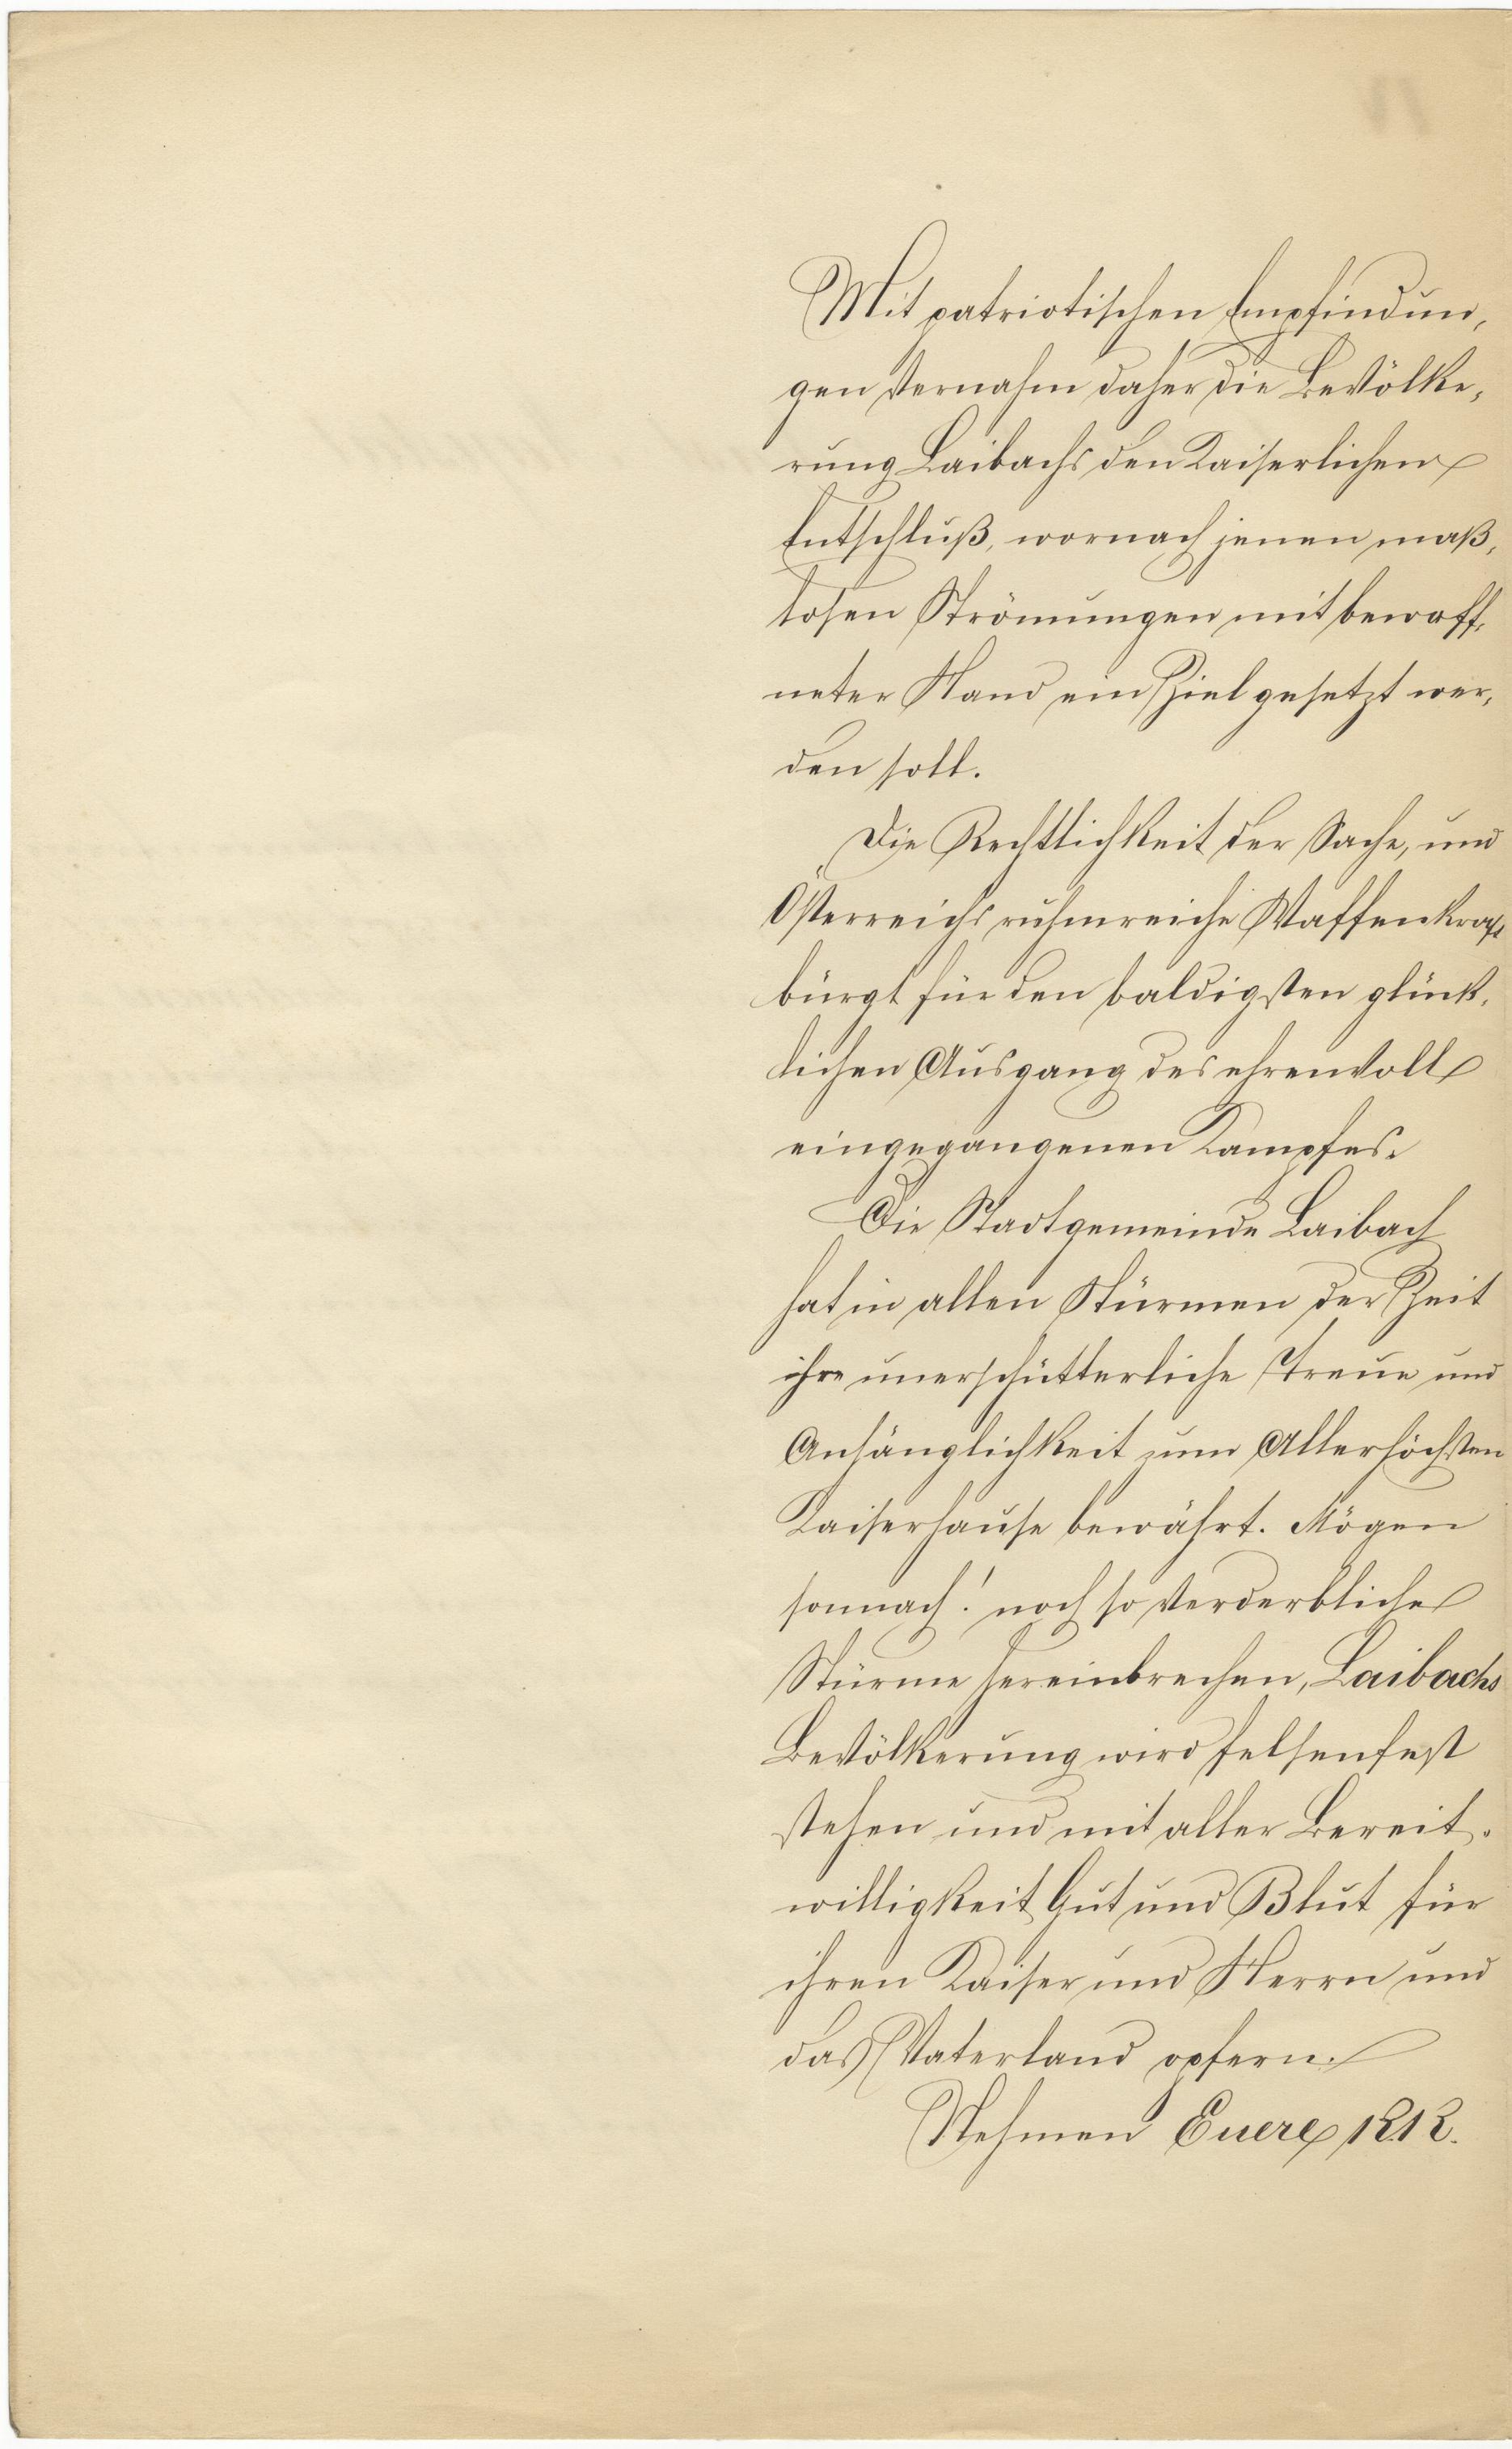 Mit patriotischen Empfindun,
gen vernahm daher die Bevölke,
rung Laibachs den Kaiserlichen
Entschluß, wornach jenen maß,
losen Strömungen mit bewaff,
neter Hand ein Ziel gesetzt wer,
den soll.
Die Rechtlichkeit der Sache, und
Österreichs ruhmreiche Waffenkraft
bürgt für den baldigsten glück,
lichen Ausgang des ehrenvoll
eingegangenen Kampfes.
Die Stadtgemeinde Laibach
hat in allen Stürmen der Zeit
ihre unerschütterliche Treue und
Anhänglichkeit zum Allerhöchsten
Kaiserhause bewährt. Mögen
sonnach! noch so verderbliche
Stürme hereinbrechen, Laibachs
Bevölkerung wird felsenfest
stehen und mit aller Bereit,
willigkeit Gut und Blut für
ihren Kaiser und Herrn und
das Vaterland opfern.
Nehmen Euere K.K.